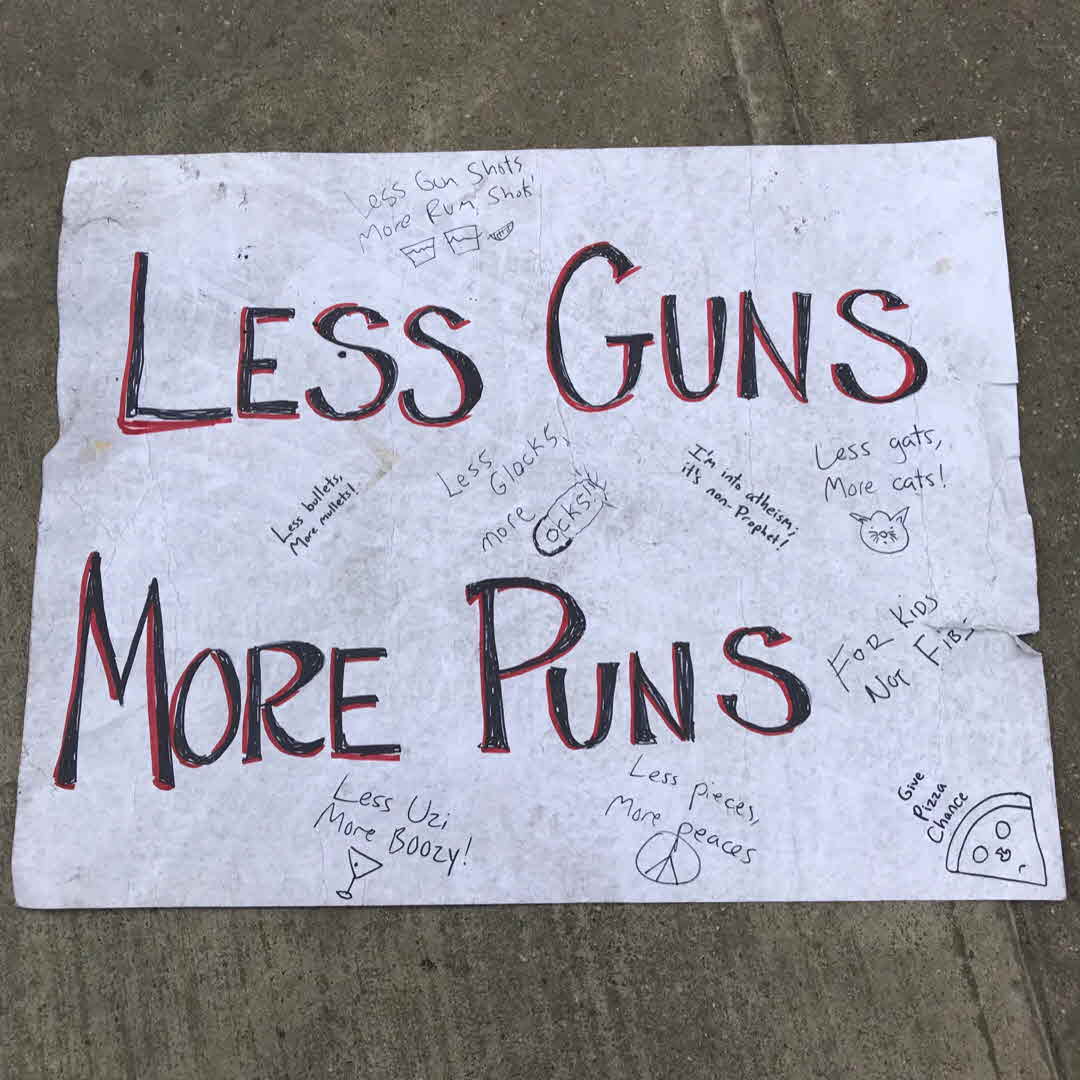 Less Gun Shots
More Rum Shots!
LESS GUNS
Less bullets,
More mullets!
Less
Glocks,
more
ocks!
I'm into atheism;
it's non-Prophet!
Less gats,
More cats!
MORE PUNS
FOR KIDS
NOT FIBS
Less Uzi
More Boozy!
Less pieces,
More peaces
Give
Pizza
Chance